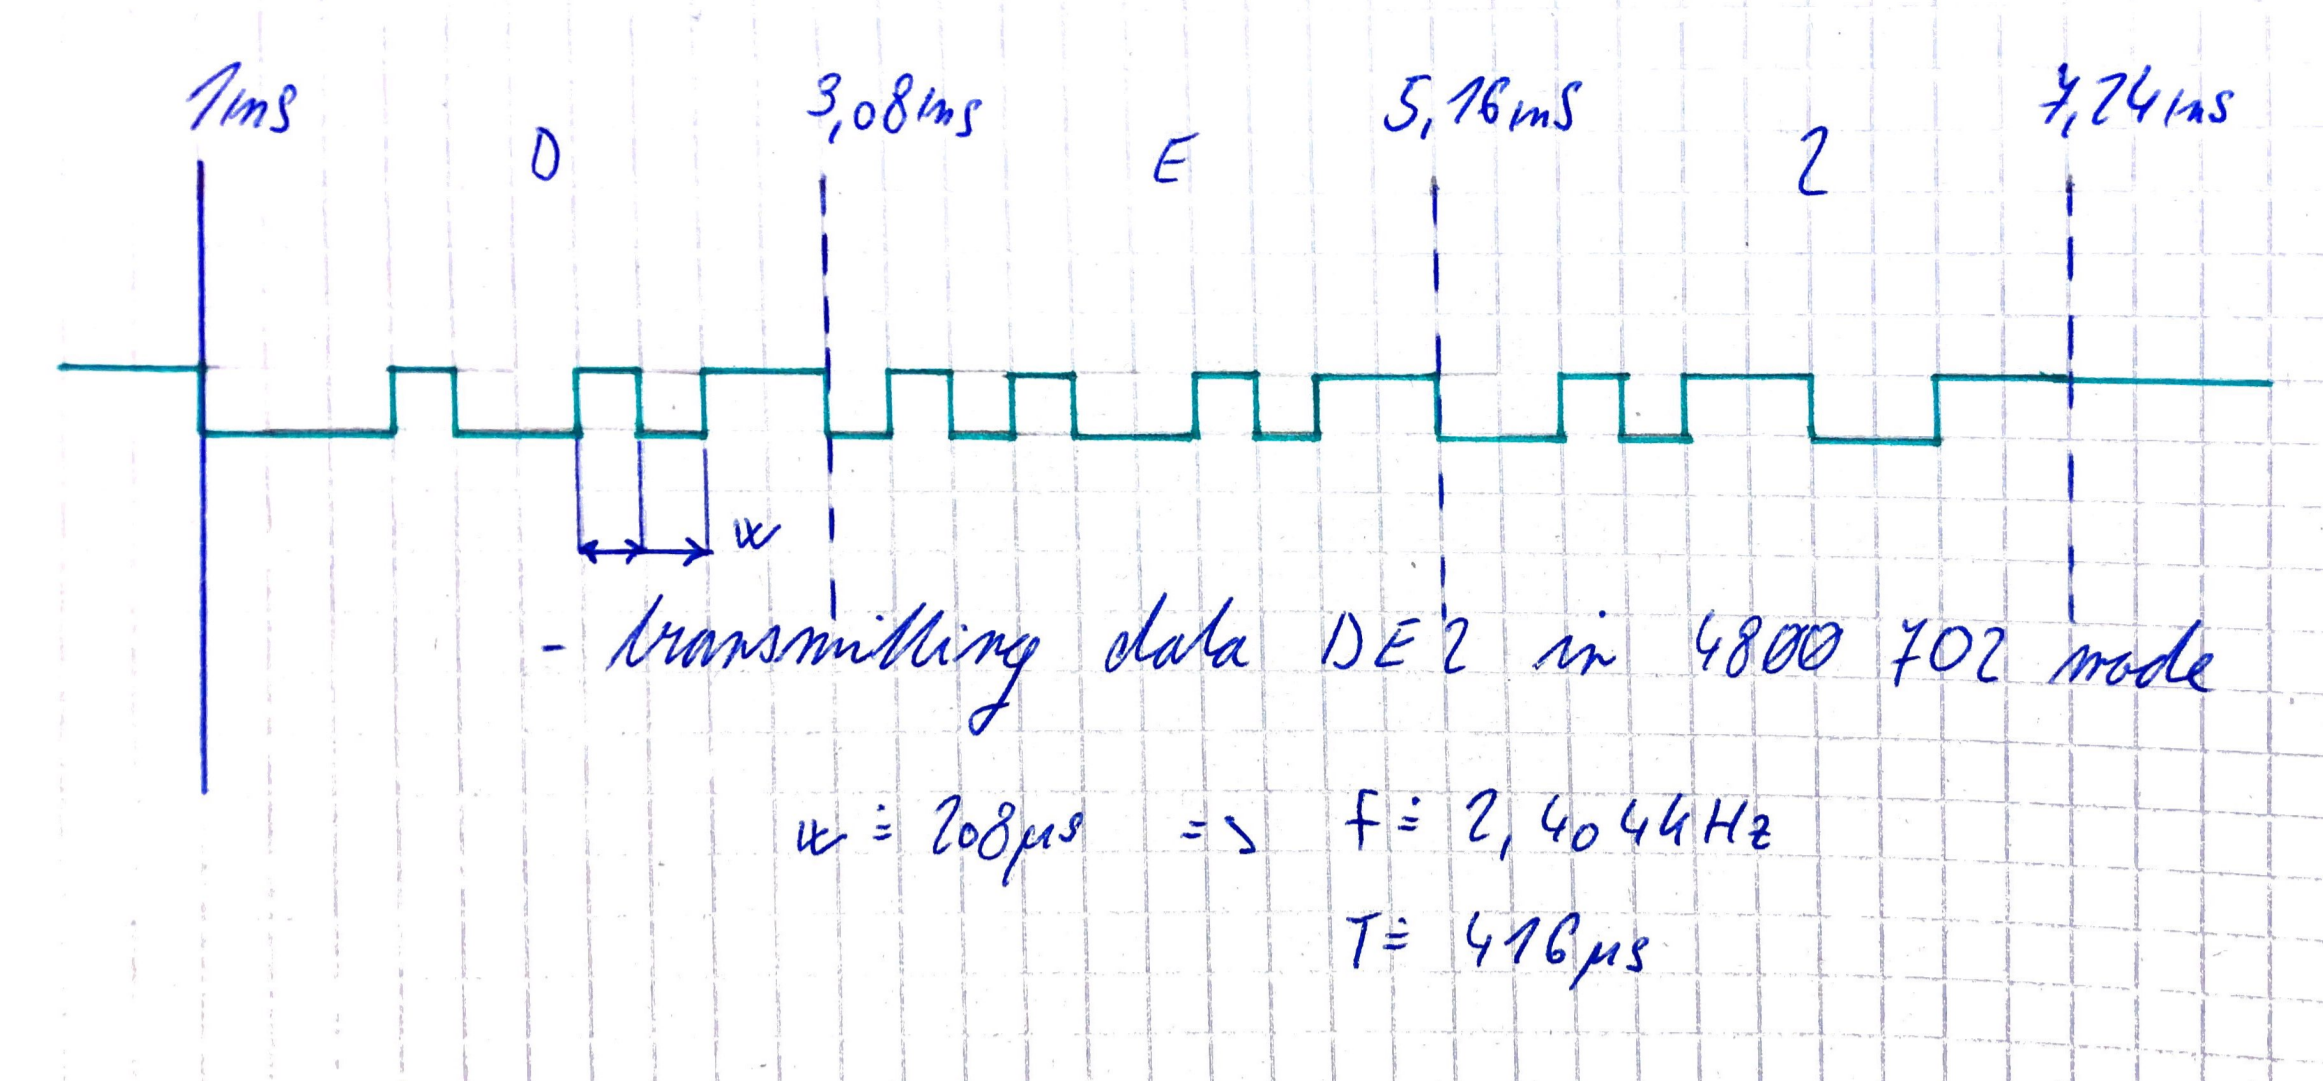 1ms 3,08ms 5,16ms 7,24ms
D E 2
w
- transmitting data DE2 in 4800 7O2 mode
w ≐ 208μs => f ≐ 2,404kHz
T ≐ 416μs